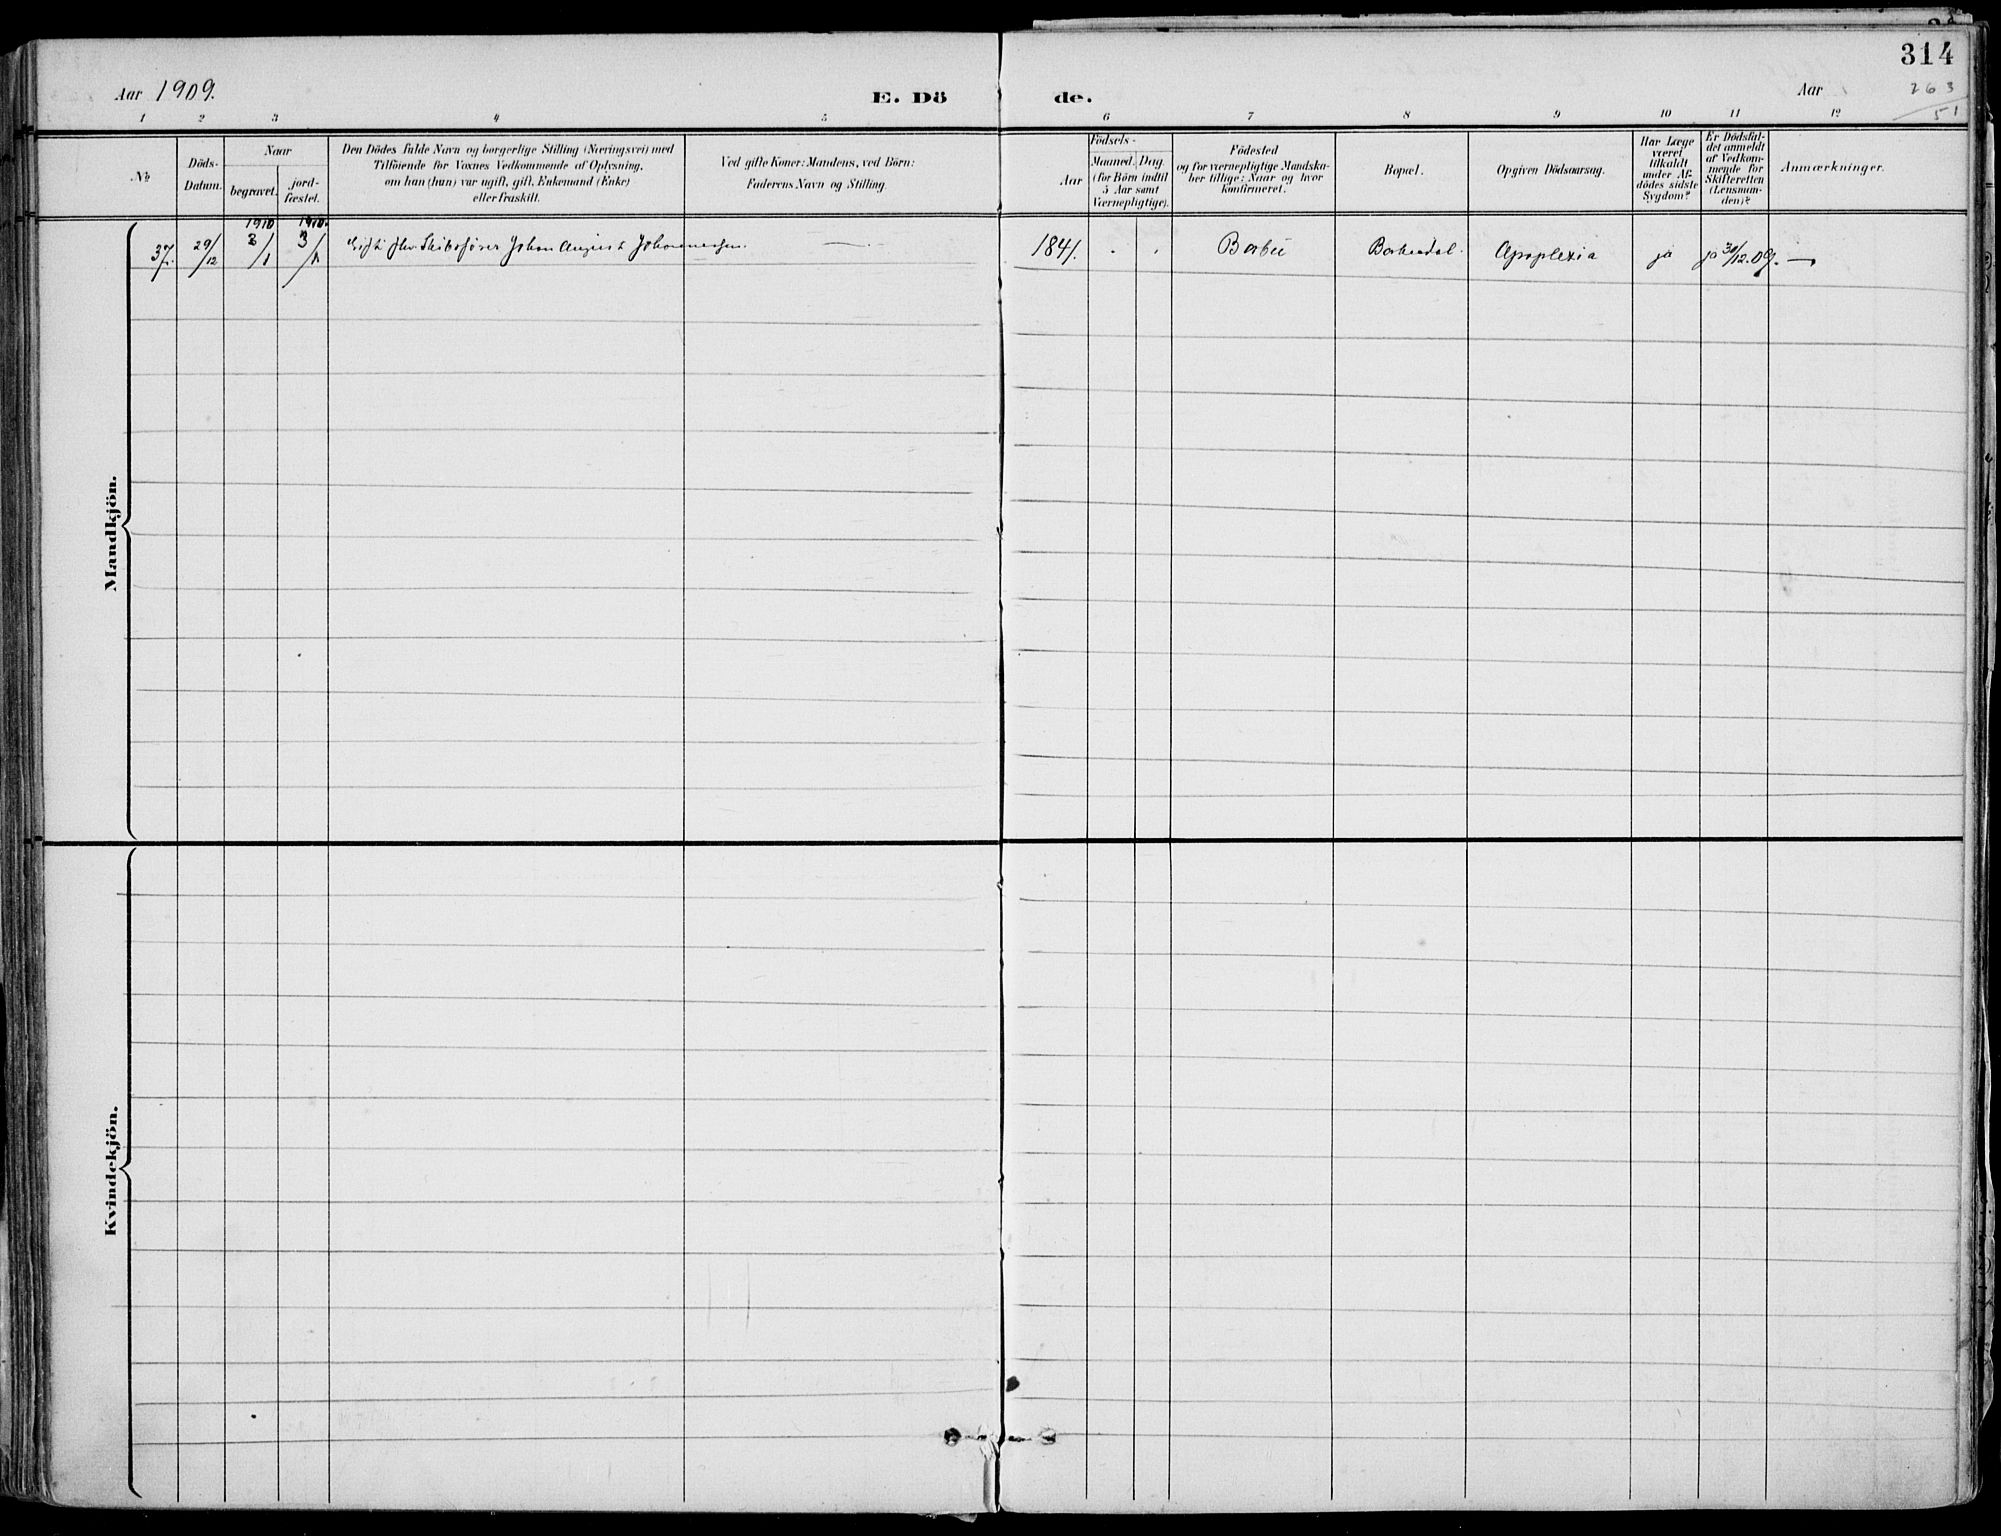 314
Aar 1909.
E. Dö
de.
Aar
263
51
1 2 3 4 5 6 7 8 9 10 11 12
No
Döds-
Datum.
Naar
begravet.
jord-
fæstet.
Den Dödes fulde Navn og borgerlige Stilling (Næringsvei) med
Tilföiende for Voxnes Vedkommende af Oplysning,
om han (hun) var ugift, gift, Enkemand (Enke)
eller fraskilt.
Ved gifte Koner: Mandens, ved Börn:
Faderens Navn og Stilling.
Födsels-
Aar
Maaned. Dag.
(for Börn indtil
5 Aar samt
Værnepligtige).
Födested
og for værnepligtige Mandska-
ber tillige: Naar og hvor
konfirmeret.
Bopæl.
Opgiven Dödsaarsag.
Har Læge
været
tilkaldt
under Af-
dödes sidste
Sygdom?
Er Dödsfal-
det anmeldt
af Vedkom-
mende for
Skifteretten
(Lensman-
den)?
Anmærkninger.
1910 1910.
37. 29/12 3/1 3/1 Gift fhv. Skibsfører Johan August Johannessen. — 1841. Barbu Barbudal. Apoplexia ja ja 30/12.09. —
Mandkjön.
Kvindekjön.